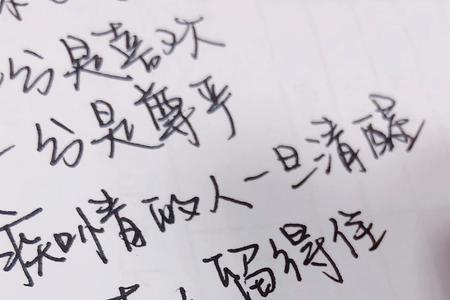 分是喜欢
一分是尊严
痴情的人一旦清醒
留得住